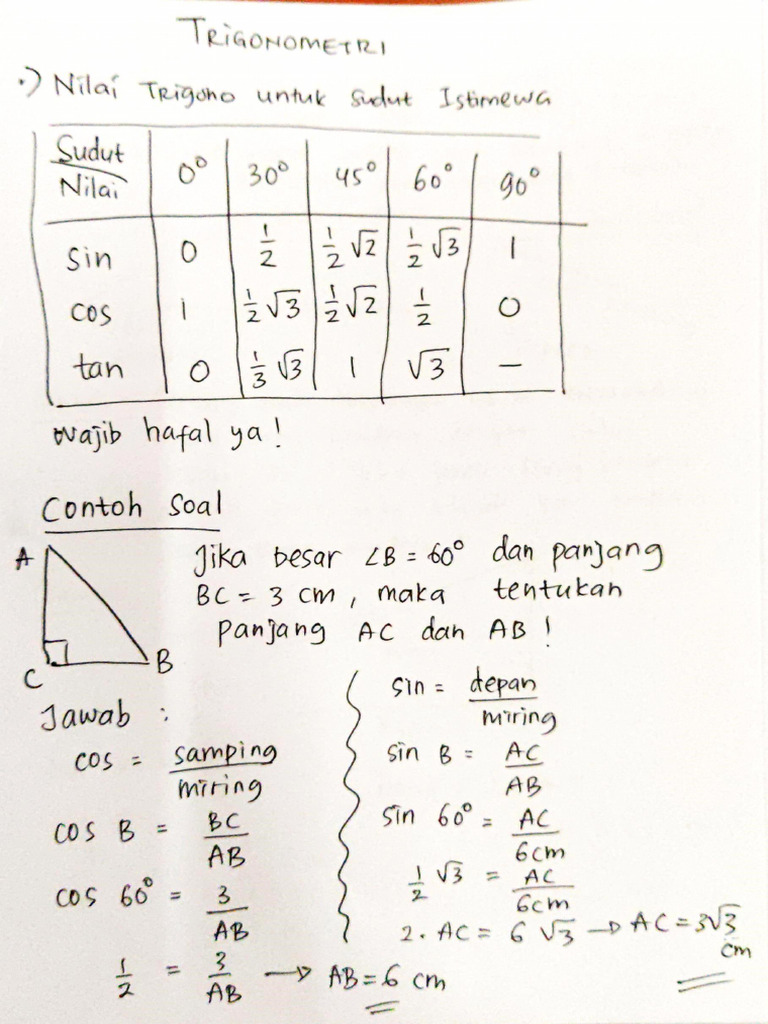 TRIGONOMETRI
•) Nilai Trigono untuk Sudut Istimewa
Sudut/Nilai 0° 30° 45° 60° 90°
sin 0 1/2 1/2 √2 1/2 √3 1
cos 1 1/2 √3 1/2 √2 1/2 0
tan 0 1/3 √3 1 √3 –
Wajib hafal ya!
Contoh Soal
A
C
B
Jika besar ∠B = 60° dan panjang
BC = 3 cm, maka tentukan
panjang AC dan AB!
Jawab :
cos = samping/miring
cos B = BC/AB
cos 60° = 3/AB
1/2 = 3/AB → AB = 6 cm
sin = depan/miring
sin B = AC/AB
sin 60° = AC/6cm
1/2 √3 = AC/6cm
2. AC = 6 √3 → AC = 3√3 cm